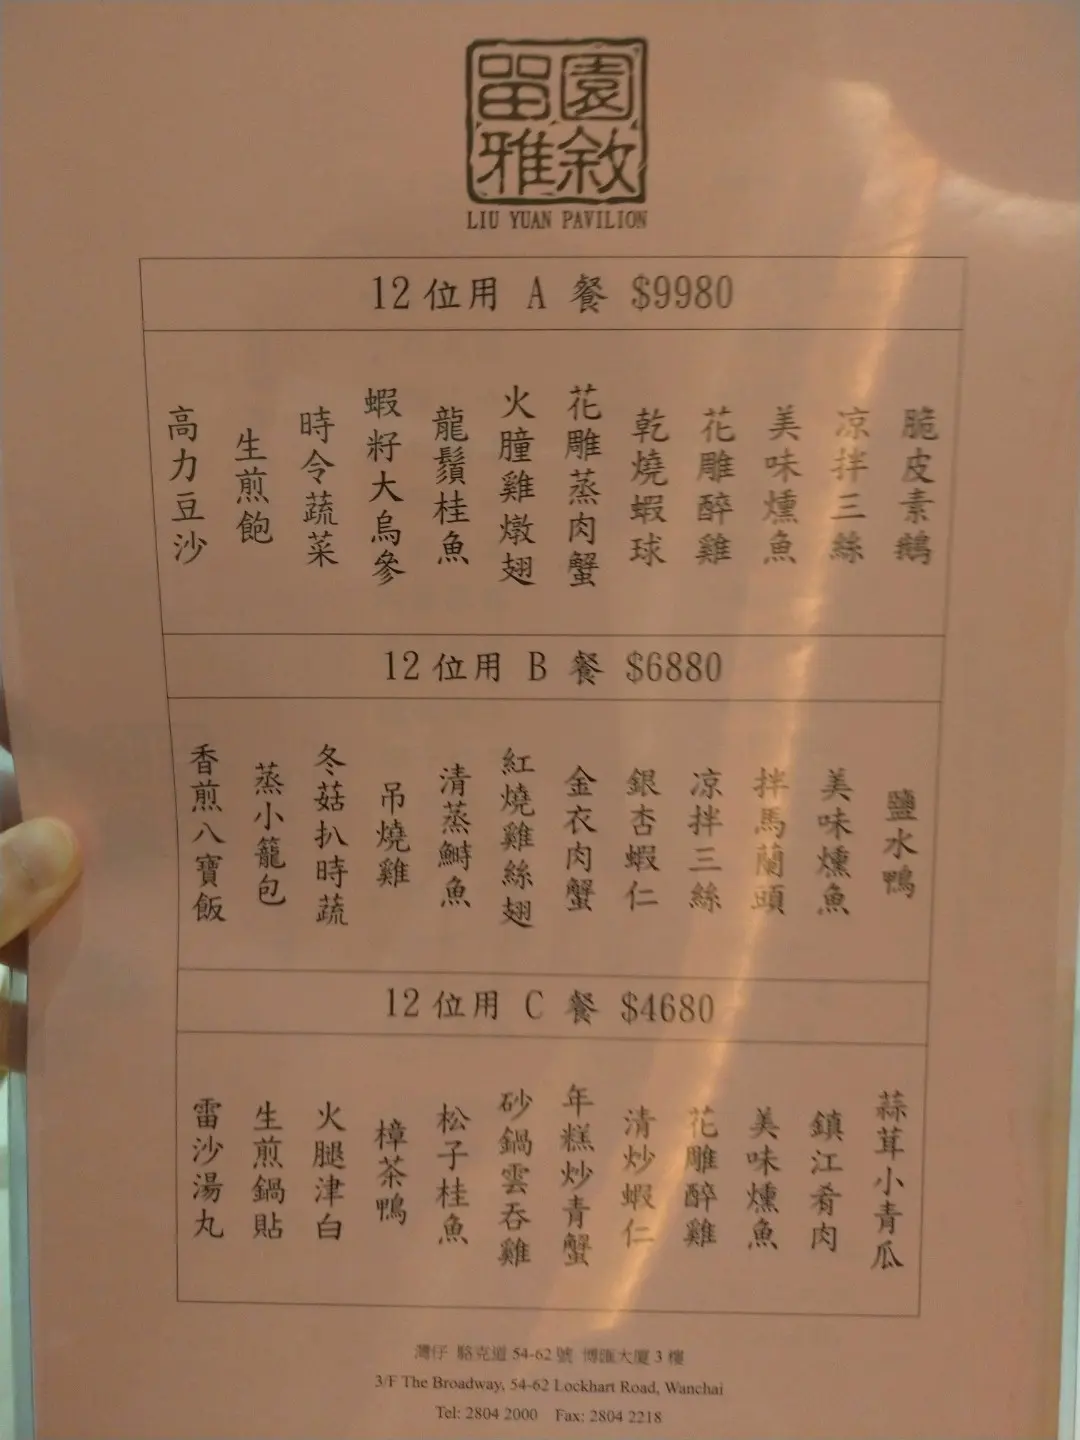 留園
雅敘
LIU YUAN PAVILION
12位用 A 餐 $9980
脆皮素鵝
凉拌三絲
美味燻魚
花雕醉雞
乾燒蝦球
花雕蒸肉蟹
火朣雞燉翅
龍鬚桂魚
蝦籽大烏參
時令蔬菜
生煎飽
高力豆沙
12位用 B 餐 $6880
鹽水鴨
美味燻魚
拌馬蘭頭
凉拌三絲
銀杏蝦仁
金衣肉蟹
紅燒雞絲翅
清蒸鰣魚
吊燒雞
冬菇扒時蔬
蒸小籠包
香煎八寶飯
12位用 C 餐 $4680
蒜茸小青瓜
鎮江肴肉
美味燻魚
花雕醉雞
清炒蝦仁
年糕炒青蟹
砂鍋雲吞雞
松子桂魚
樟茶鴨
火腿津白
生煎鍋貼
雷沙湯丸
灣仔 駱克道 54-62 號 博匯大廈 3 樓
3/F The Broadway, 54-62 Lockhart Road, Wanchai
Tel: 2804 2000 Fax: 2804 2218